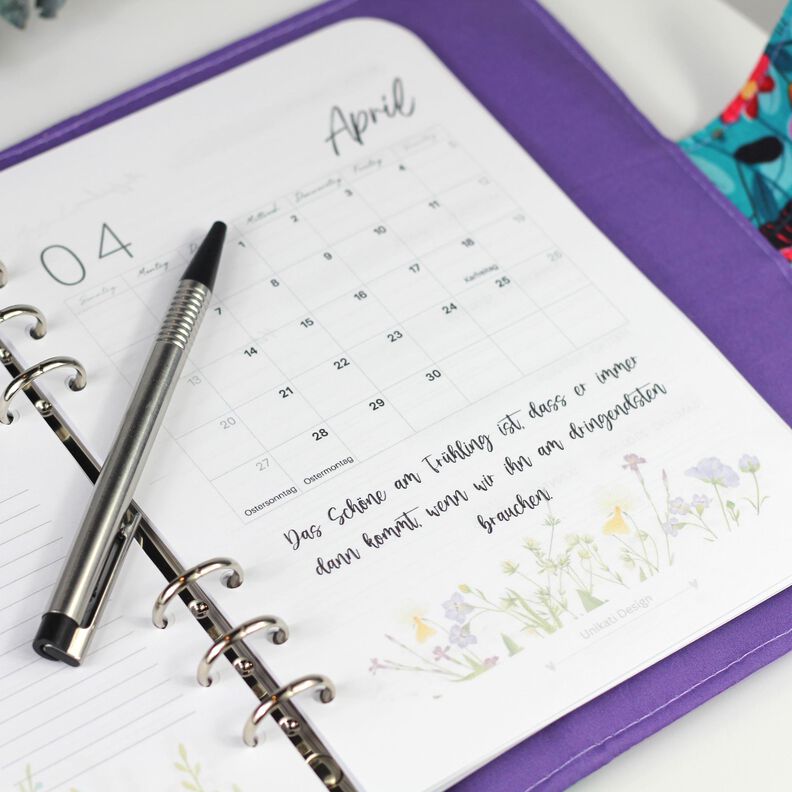 April
04
Sonntag Montag Mittwoch Donnerstag Freitag Samstag
1 2 3 4 5
7 8 9 10 11 12
13 14 15 16 17 18 19
Karfreitag
20 21 22 23 24 25 26
27 28 29 30
Ostersonntag Ostermontag
Das Schöne am Frühling ist, dass er immer
dann kommt, wenn wir ihn am dringendsten
brauchen.
Unikati Design